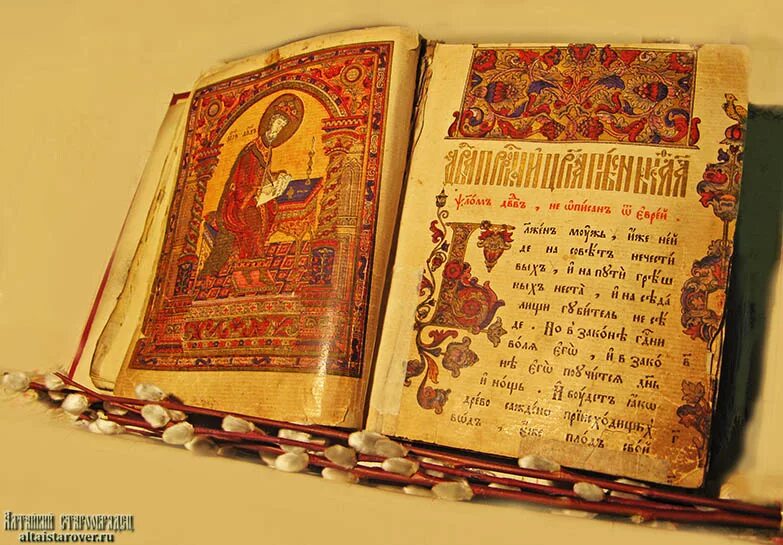 ѱало́мъ дв҃дв, не ѡ҆пи́санъ ѿ є҆вре́й.
Бл҃же́нъ мꙋ́жъ, и҆́же не и҆́
де на совѣ́тъ нечести́
выхъ, и҆ на пꙋти́ грѣ́ш
ныхъ не ста̀, и҆ на сѣда́
лищи гꙋби́тель не сѣ́
де. Но в зако́нѣ гд҇ни
во́лѧ є҆гѡ̀, и҆ в зако́
нѣ є҆гѡ̀ поꙋчи́тсѧ дн҃ь
и҆ но́щь. И҆ бꙋ́детъ ꙗ҆́кѡ
дре́во сажде́но при и҆схо́дищихъ
во́дъ, є҆́же пло́дъ сво́й
Алтайский старообрядец
altaistarover.ru